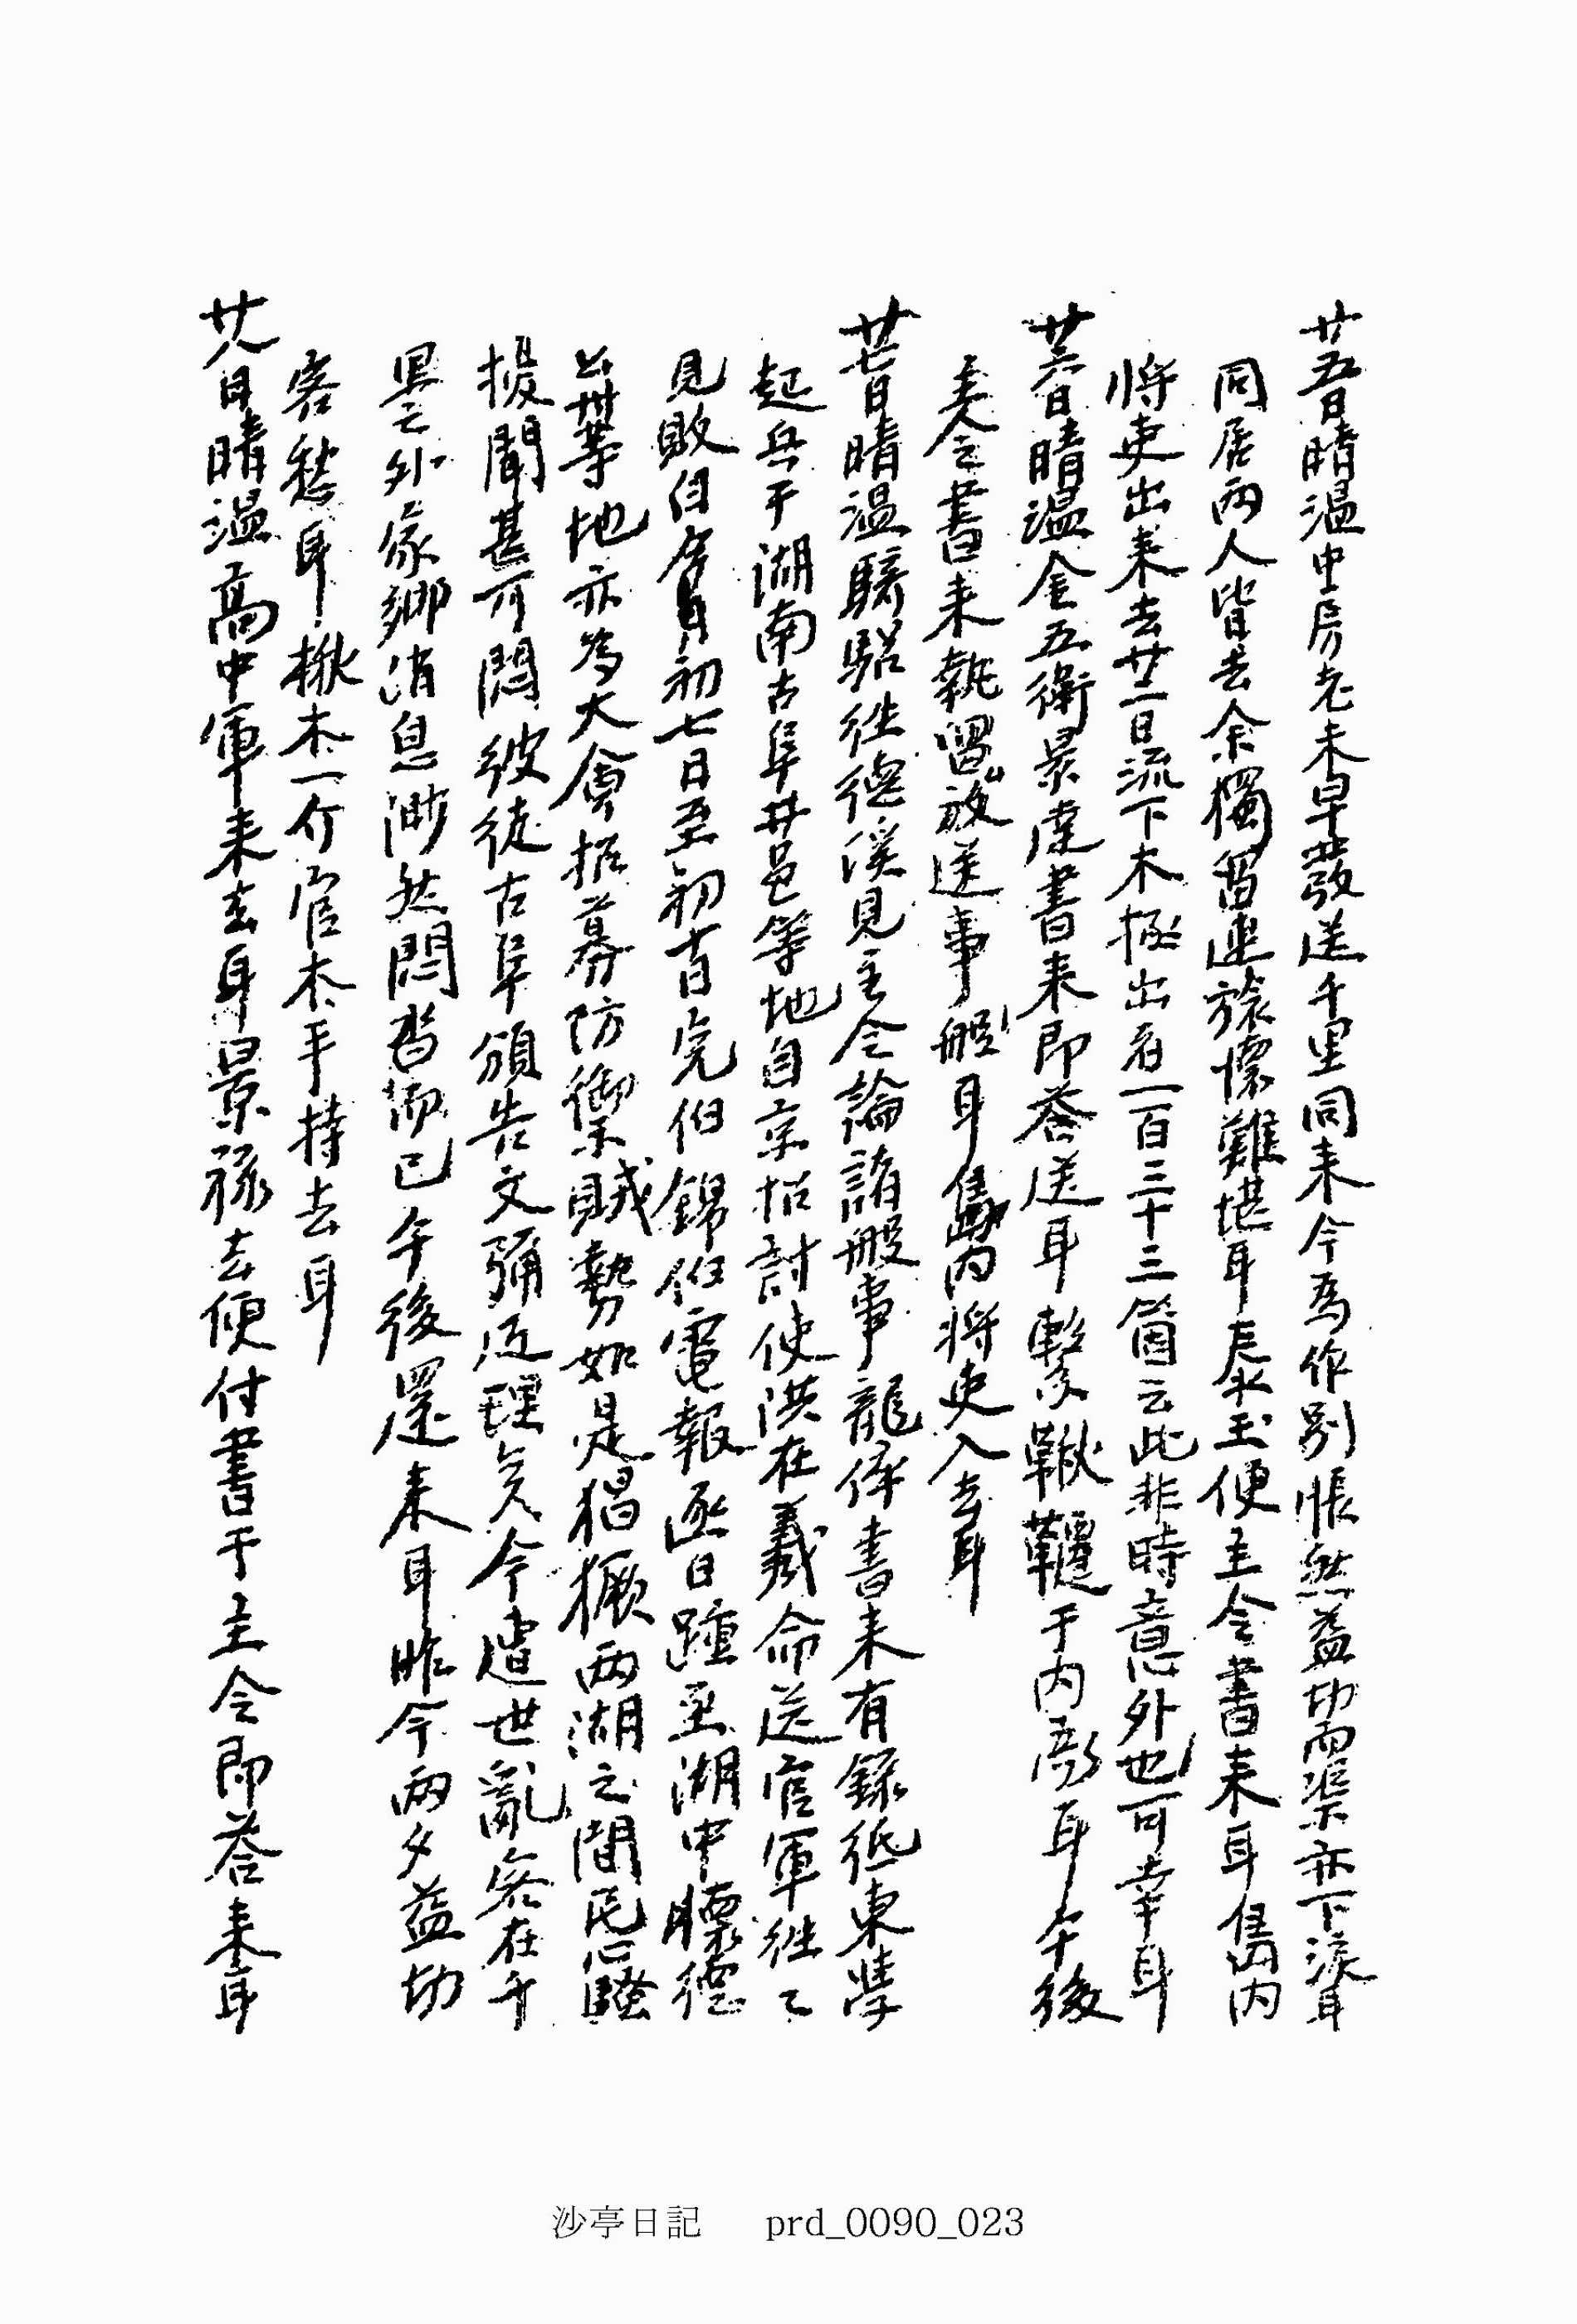 廿五日晴溫中房老未早發送千里同來今爲作別悵然益切而渠亦下淚耳
同居兩人皆去余獨留逆旅懷難堪耳辰玉便主令書來耳雋內
將吏出來去廿一日流下木極出者一百三十三箇云此非時意外也可幸耳
廿六日晴溫金五衛景達書來即答送耳繫鞦韆于內耳午後
主令書來執留放送事般耳雋內將吏入去耳
廿七日晴溫騎駱往德溪見主令論諸般事龍倅書來有錄紙東學
起兵于湖南古阜井邑等地自京招討使洪在羲命送官軍往往
見敗自今月初七日至初十日完伯錦伯電報逐日踵至湖中懷德
公州等地亦爲大會招募防禦賊勢如是猖獗兩湖之間民心騷
擾聞甚可悶彼徒古阜頒告文彌近理矣今遭世亂客在千
里之外家鄉消息渺然悶沓而已午後還來耳昨今兩夕益切
客愁耳楸木一介官木手持去耳
廿八日晴溫高中軍來去耳景祿去便付書于主令即答來耳
沙亭日記 prd_0090_023